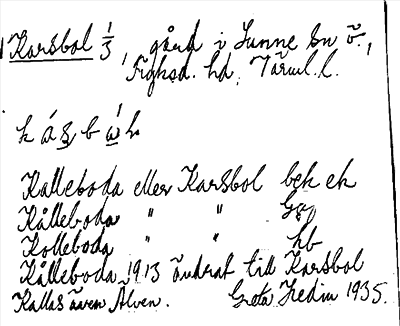 Karsbol 1/3, gård i Sunne sn ö.,
Fryksd. hd, Värml. l.
Kalleboda eller Karsbol bek ek
Kålleboda " "
Kolleboda " " hb
Kålleboda 1913 ändrat till Karsbol
Kallas även Älven. Greta Hedin 1935.